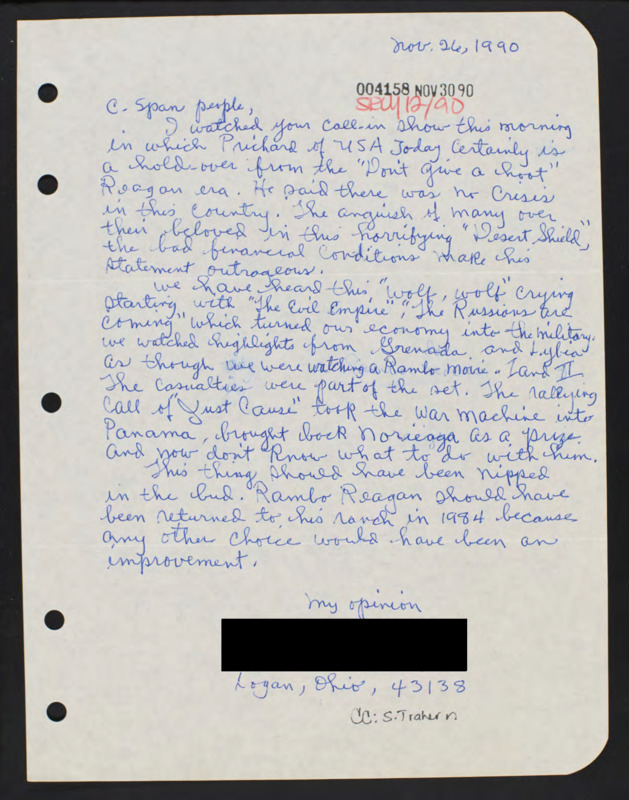 Nov. 26, 1990
004158 NOV 30 90
12/90
C. Span people,
I watched your call-in show this morning
in which Prichard of USA Today Certainly is
a hold-over from the "Don't give a hoot"
Reagan era. He said there was no Crisis
in this Country. The anguish of many over
their beloved in this horrifying "Desert Shield",
the bad financial conditions make his
statement outrageous.
We have heard this "wolf, wolf" crying
starting with "The Evil Empire", "The Russians are
coming" which turned our economy into the military.
We watched highlights from Grenada and Lybia
as though we were watching a Rambo movie - I and II
The casualties were part of the set. The rallying
call of "Just Cause" took the war machine into
Panama, brought back Norieaga as a prize
and now don't know what to do with him.
This thing should have been nipped
in the bud. Rambo Reagan should have
been returned to his ranch in 1984 because
any other choice would have been an
improvement.
My opinion
Logan, Ohio, 43138
CC: S. Trahern